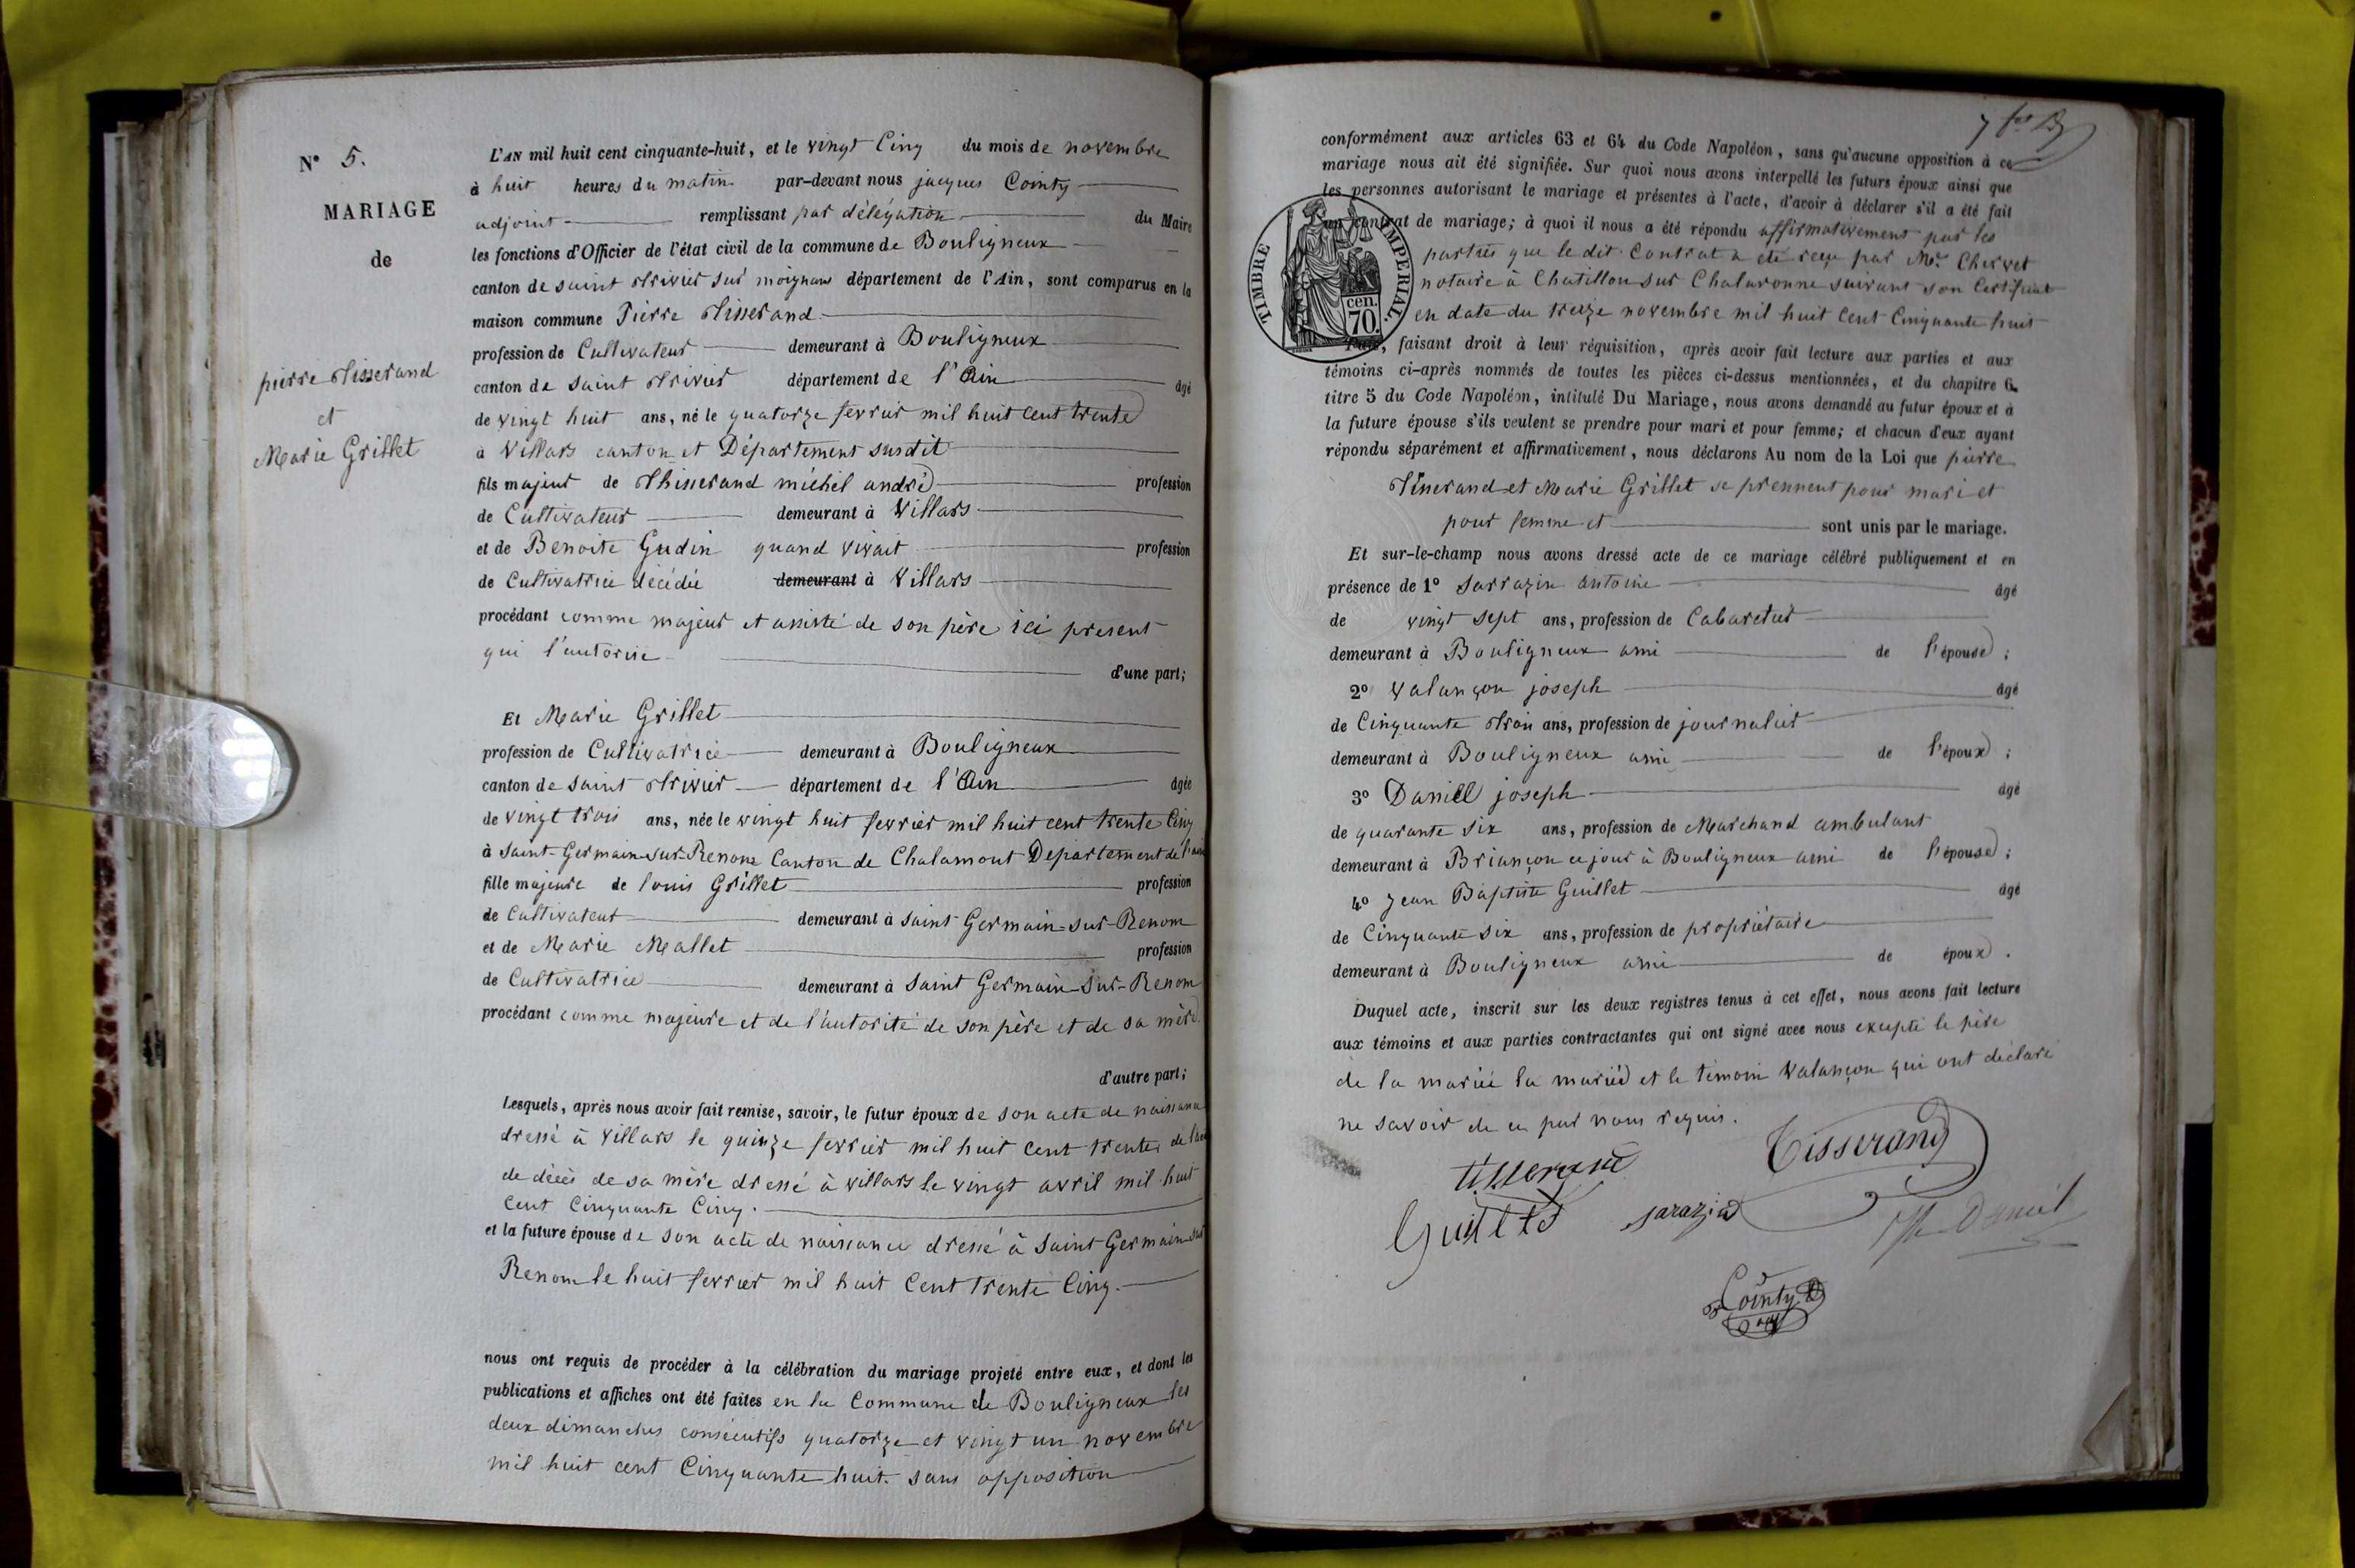 N° 5.
MARIAGE
de
pierre Tisserand
et
Marie Grillet
L'AN mil huit cent cinquante-huit, et le vingt Cinq du mois de novembre
à huit heures du matin par-devant nous jacques Cointy
adjoint remplissant par délégation du Maire
les fonctions d'Officier de l'état civil de la commune de Bouligneux
canton de saint Trivier sur moignans département de l'Ain, sont comparus en la
maison commune Pierre Tisserand
profession de Cultivateur demeurant à Bouligneux
canton de saint Trivier département de l'Ain âgé
de vingt huit ans, né le quatorze fevrier mil huit cent trente
à Villars canton et Département susdit
fils majeur de Thisserand michel andré profession
de Cultivateur demeurant à Villars
et de Benoite Gudin quand vivait profession
de Cultivatrice décédée demeurant à Villars
procédant comme majeur et assisté de son père ici present
qui l'autorise
d'une part;
Et Marie Grillet
profession de Cultivatrice demeurant à Bouligneux
canton de saint Trivier département de l'Ain âgée
de vingt trois ans, née le vingt huit fevrier mil huit cent trente Cinq
à Saint-Germain-sur-Renom Canton de Chalamont Departement de l'ain
fille majeure de louis Grillet profession
de Cultivateur demeurant à saint Germain-sur-Renom
et de Marie Mallet profession
de Cultivatrice demeurant à Saint Germain-sur-Renom
procédant comme majeure et de l'autorité de son père et de sa mère
d'autre part;
Lesquels, après nous avoir fait remise, savoir, le futur époux de son acte de naissance
dressé à villars le quinze fevrier mil huit cent trente, de l'acte
de décès de sa mère dressé à villars le vingt avril mil huit
cent Cinquante Cinq.
et la future épouse de son acte de naissance dressé à Saint Germain sur
Renom le huit fevrier mil huit Cent trente Cinq.
nous ont requis de procéder à la célébration du mariage projeté entre eux, et dont les
publications et affiches ont été faites en la Commune de Bouligneux les
deux dimanches consécutifs quatorze et vingt un novembre
mil huit cent Cinquante huit. sans opposition
conformément aux articles 63 et 64 du Code Napoléon, sans qu'aucune opposition à ce
mariage nous ait été signifiée. Sur quoi nous avons interpellé les futurs époux ainsi que
les personnes autorisant le mariage et présentes à l'acte, d'avoir à déclarer s'il a été fait
un contrat de mariage; à quoi il nous a été répondu affirmativement par les
parties que le dit Contrat a été reçu par Me Chervet
notaire à Chatillon sur Chalaronne suivant son Certificat
en date du treize novembre mil huit Cent Cinquante huit
TIMBRE IMPERIAL.
cen.
70.
Puis, faisant droit à leur réquisition, après avoir fait lecture aux parties et aux
témoins ci-après nommés de toutes les pièces ci-dessus mentionnées, et du chapitre 6
titre 5 du Code Napoléon, intitulé Du Mariage, nous avons demandé au futur époux et à
la future épouse s'ils veulent se prendre pour mari et pour femme; et chacun d'eux ayant
répondu séparément et affirmativement, nous déclarons Au nom de la Loi que pierre
Tisserand et Marie Grillet se prennent pour mari et
pour femme et sont unis par le mariage.
Et sur-le-champ nous avons dressé acte de ce mariage célébré publiquement et en
présence de 1° Sarrazin antoine âgé
de vingt sept ans, profession de Cabaretier
demeurant à Bouligneux ami de l'épouse;
2° Valançon joseph âgé
de Cinquante Trois ans, profession de journalier
demeurant à Bouligneux ami de l'époux;
3° Daniel joseph âgé
de quarante six ans, profession de Marchand ambulant
demeurant à Briançon ce jour à Bouligneux ami de l'épouse;
4° Jean Baptiste Guillet âgé
de Cinquante six ans, profession de propriétaire
demeurant à Bouligneux ami de époux.
Duquel acte, inscrit sur les deux registres tenus à cet effet, nous avons fait lecture
aux témoins et aux parties contractantes qui ont signé avec nous excepté le père
de la mariée la mariée et le témoin Valançon qui ont déclaré
ne savoir de ce par nous requis.
tisserand
Tisserand
Guillet
sarazin
Daniel
Cointy
adj